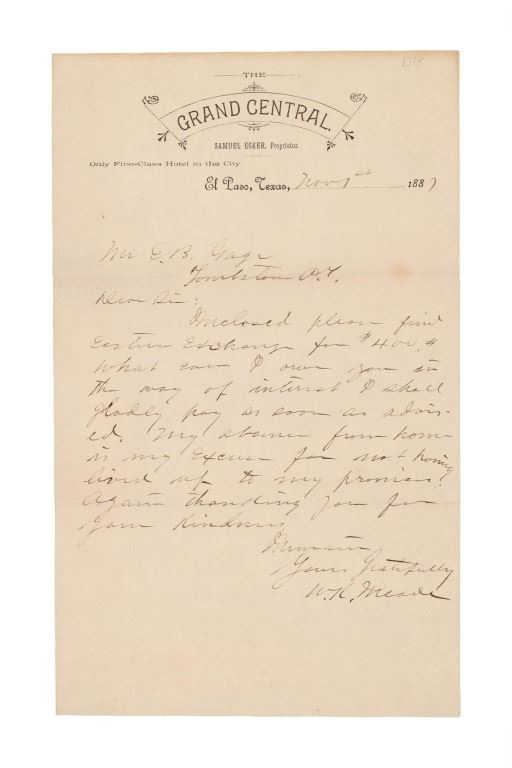 D14
THE
GRAND CENTRAL.
SAMUEL ECKER, Proprietor.
Only First-Class Hotel in the City
El Paso, Texas, Nov 1st 1887
Mr E. B. Gage
Tombston A.T.
Dear Sir:
Inclosed please find
Eastern Exchange for $400.
What ever I owe you in
the way of interest I shall
gladly pay as soon as advis-
ed. My absence from home
is my Excuse for not having
lived up to my promise.
Again thanking you for
your kindness
I remain
Yours Gratefully
W.K. Meade